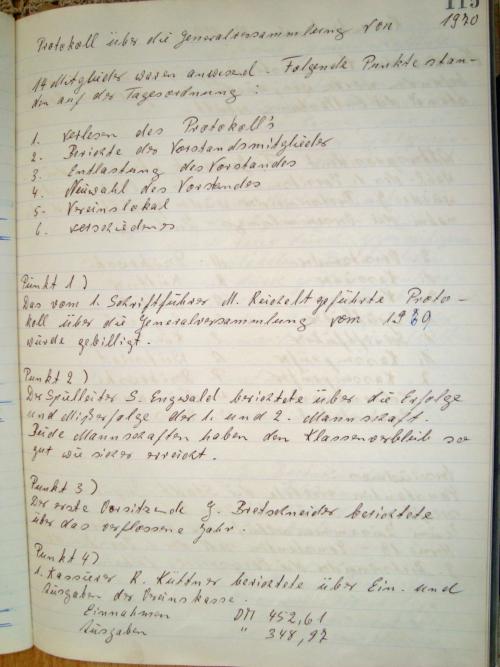 115
Protokoll über die Generalversammlung von 1970
14 Mitglieder waren anwesend. Folgende Punkte stan-
den auf der Tagesordnung:
1. verlesen des Protokoll's
2. Berichte der Vorstandsmitglieder
3. Entlastung des Vorstandes
4. Neuwahl des Vorstandes
5. Vereinslokal
6. verschiedenes
Punkt 1)
Das vom 1. Schriftführer M. Reichelt geführte Proto-
koll über die Generalversammlung vom 1969
wurde gebilligt.
Punkt 2)
Der Spielleiter S. Engwald berichtete über die Erfolge
und Mißerfolge der 1. und 2. Mannschaft.
Beide Mannschaften haben den Klassenverbleib so
gut wie sicher erreicht.
Punkt 3)
Der erste Vorsitzende G. Bretschneider berichtete
über das verflossene Jahr.
Punkt 4)
1. Kassierer R. Küttner berichtete über Ein- und
Ausgaben der Vereinskasse.
Einnahmen DM 452,61
Ausgaben " 348,97